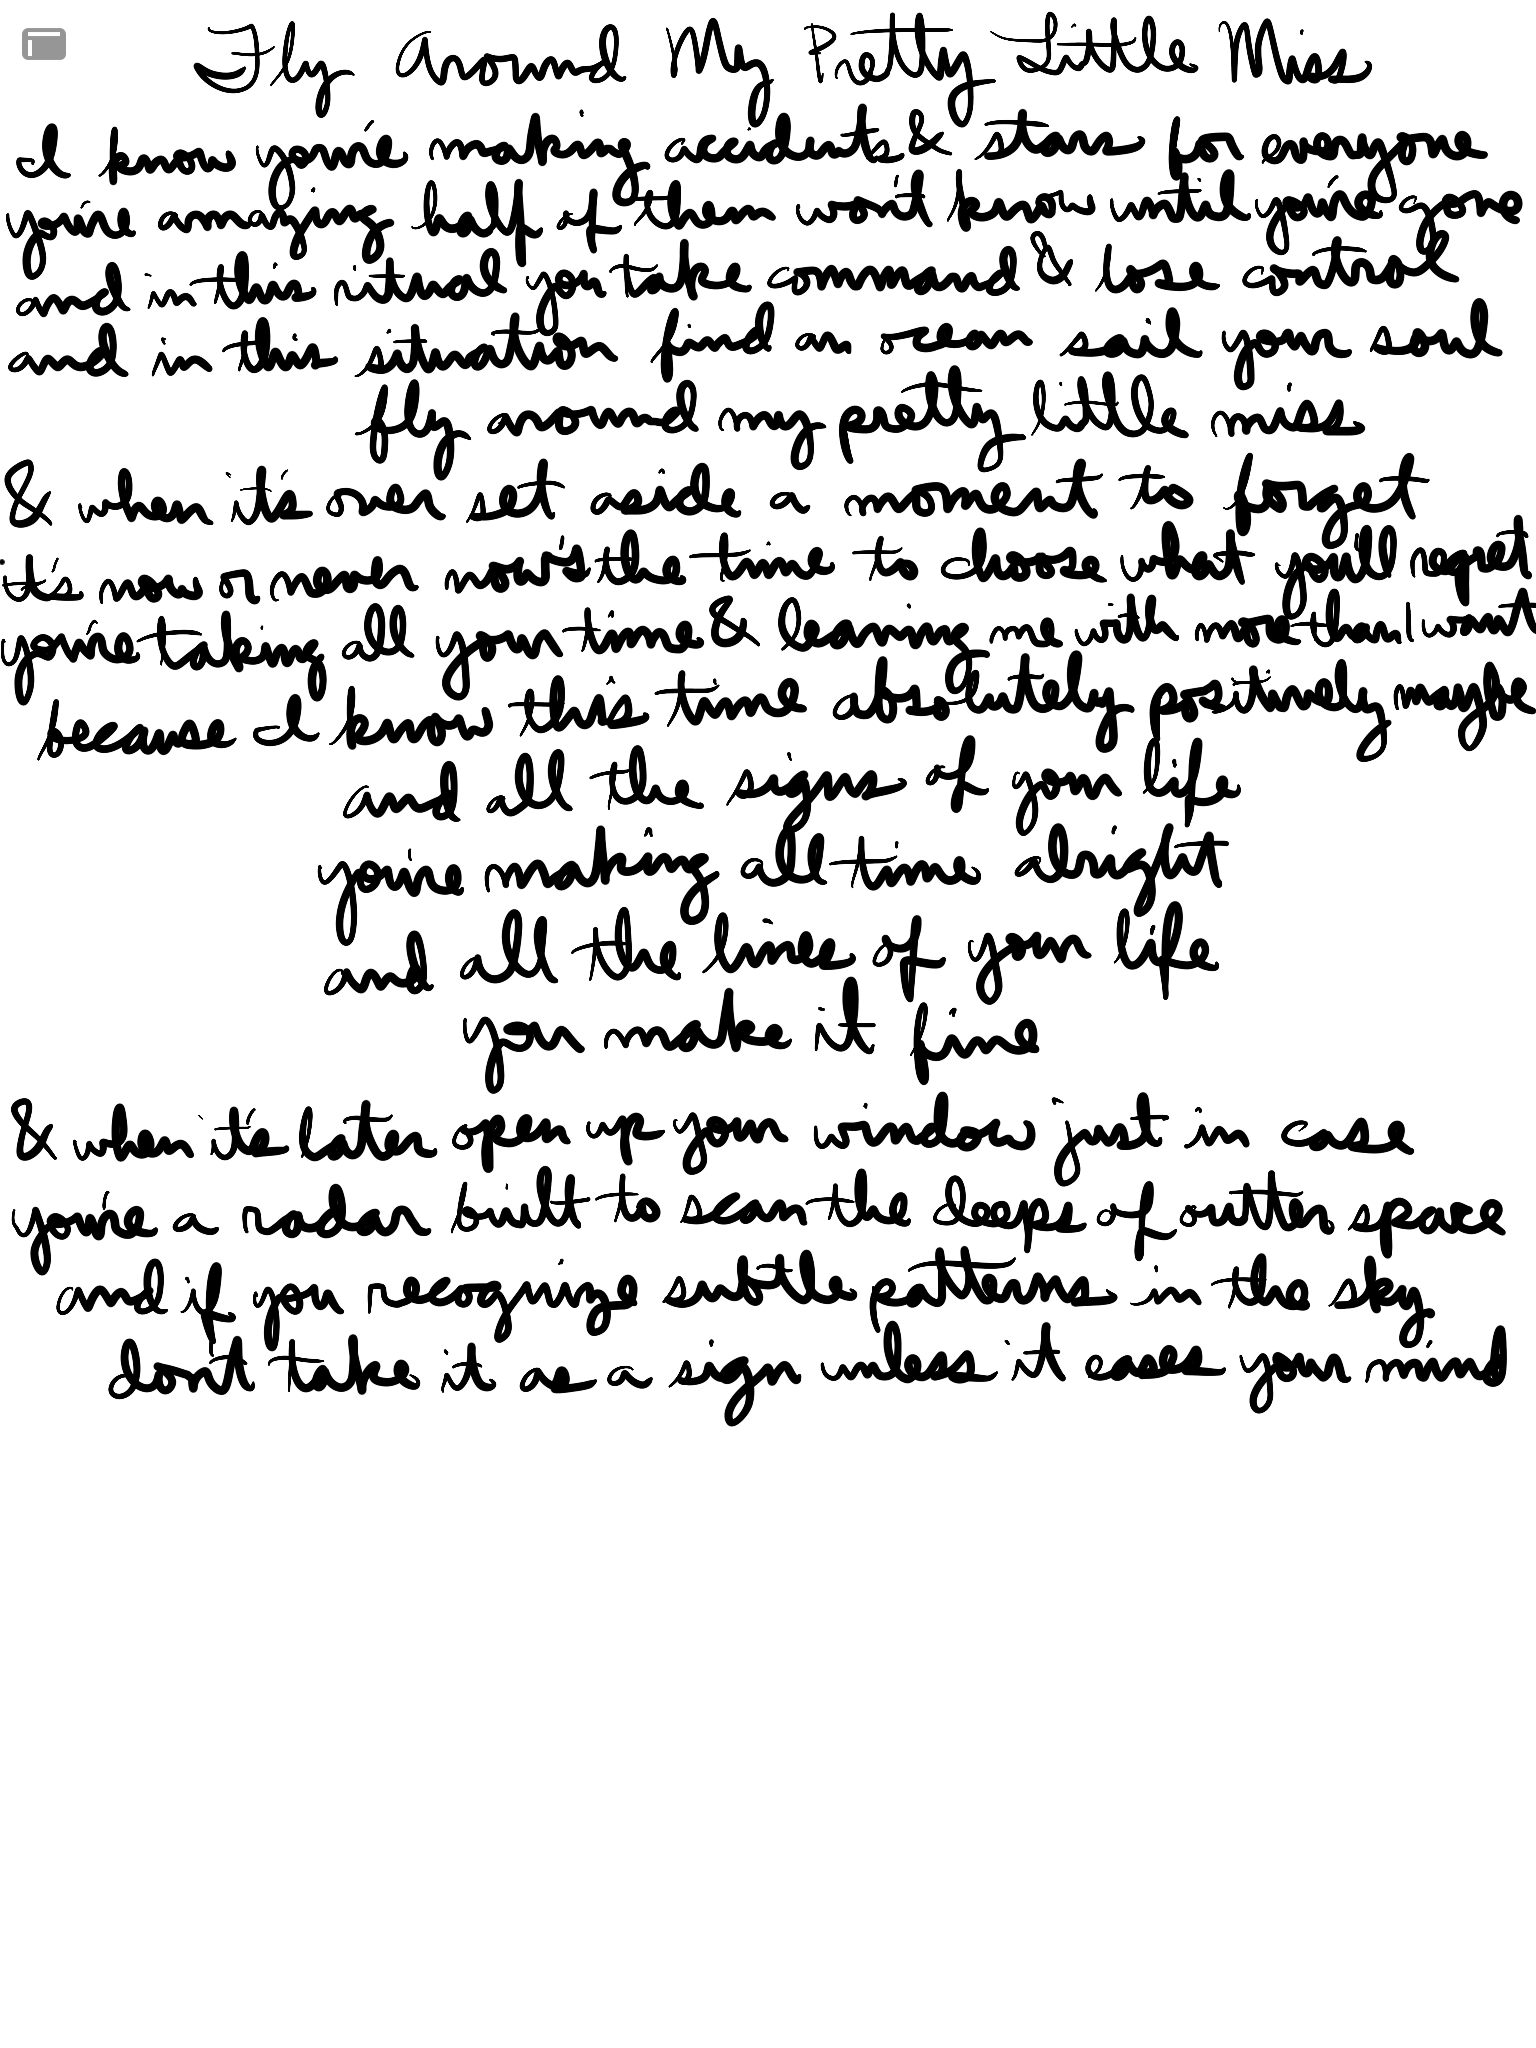 Fly Around My Pretty Little Miss
I know you're making accidents & stars for everyone
you're amazing half of them won't know until you're gone
and in this ritual you take command & lose control
and in this situation find an ocean sail your soul
fly around my pretty little miss
& when it's over set aside a moment to forget
it's now or never now's the time to choose what you'll regret
you're taking all your time & leaving me with more than I want
because I know this time absolutely positively maybe
and all the signs of your life
you're making all time alright
and all the lines of your life
you make it fine
& when it's later open up your window just in case
you're a radar built to scan the deeps of outter space
and if you recognize subtle patterns in the sky
don't take it as a sign unless it eases your mind